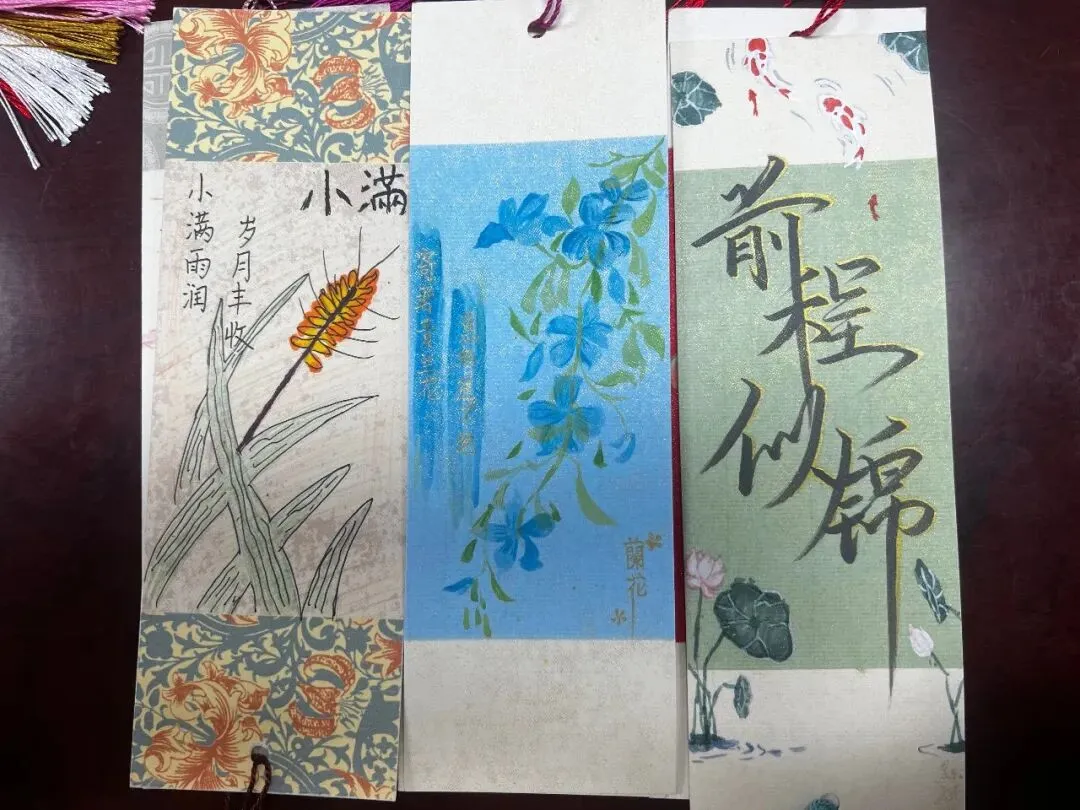 小滿
小满雨润
岁月丰收
蘭花
前程似锦